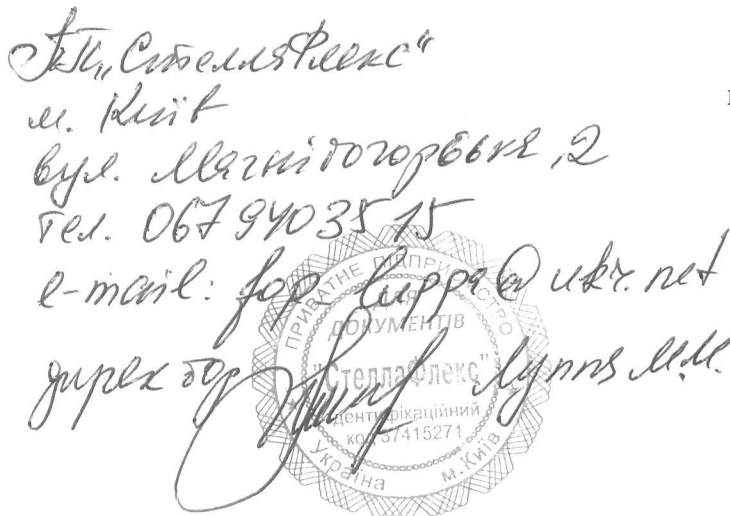 ПП „СтеллаФлекс“
м. Київ
вул. Магнітогорська, 2
тел. 067 940 35 15
e-mail: fop_luppa@ukr.net
директор Луппа М.М.
ПРИВАТНЕ ПІДПРИЄМСТВО
ДЛЯ
ДОКУМЕНТІВ
"СтеллаФлекс"
ідентифікаційний
код 37415271
Україна м.Київ